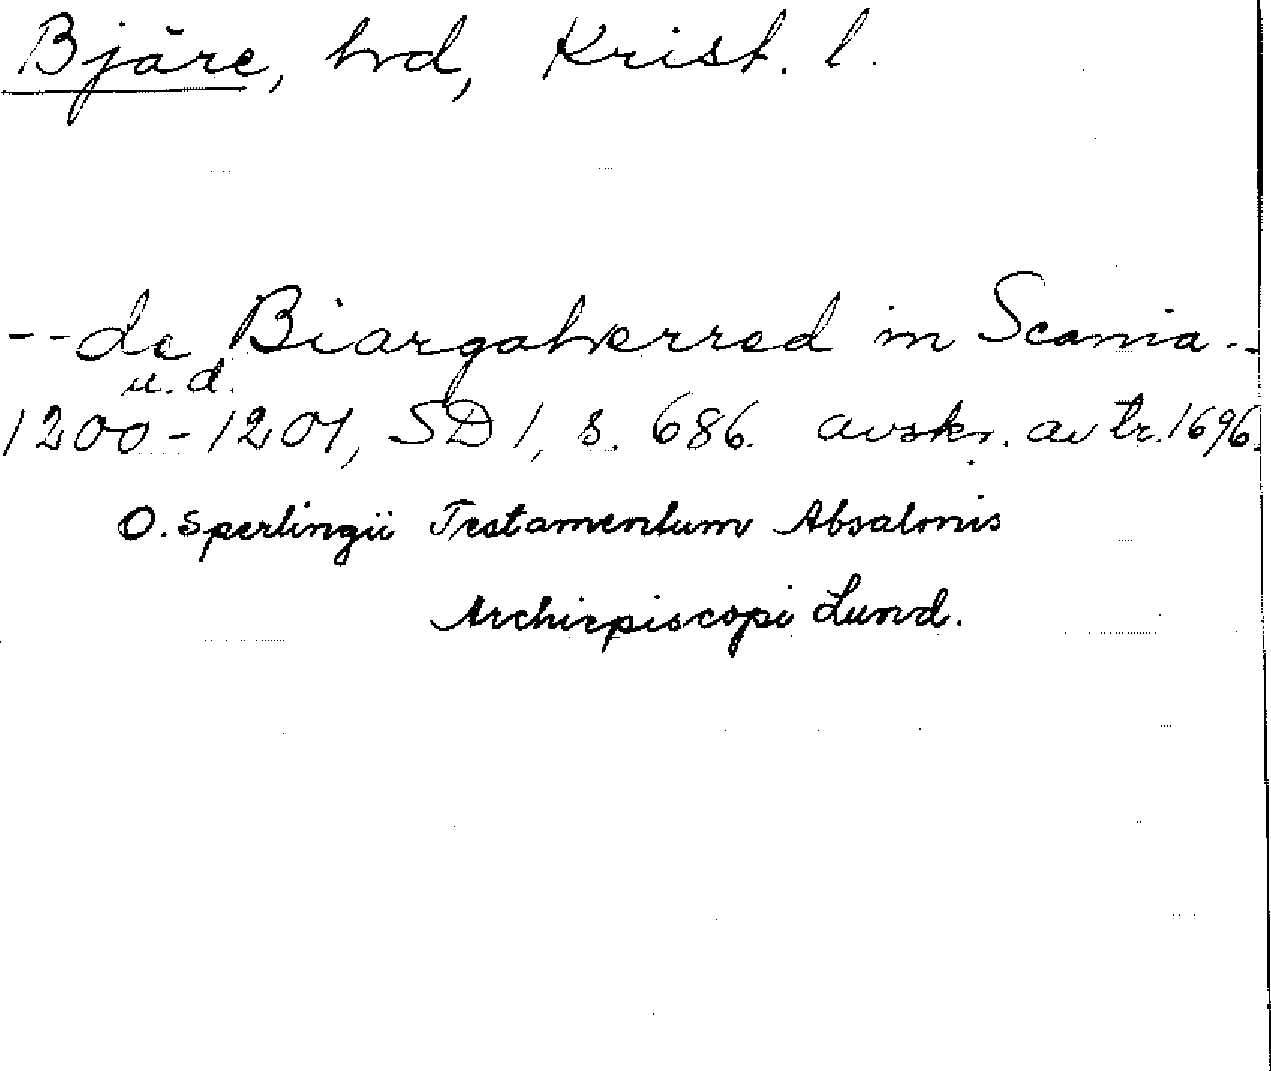 Bjäre, hrd, Krist. l.
-- de Biargahærred in Scania --
u. d.
1200-1201, SD 1, s. 686. avskr. av tr. 1696.
O. Sperlingii Testamentum Absalonis
Archiepiscopi Lund.